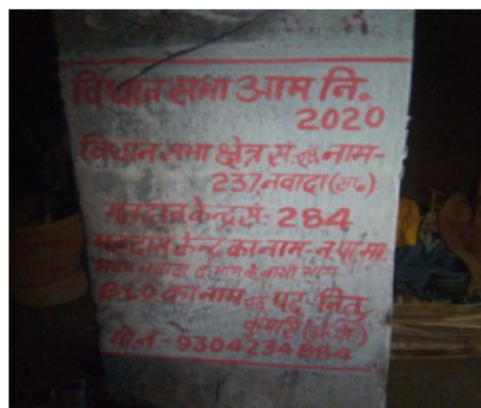 विधान सभा आम नि०
2020
विधान सभा क्षेत्र सं. एवं नाम-
237 नवादा (सा०)
मतदान केन्द्र सं- 284
मतदान केन्द्र का नाम- न. पा. म.
नवादा द० भाग के बायां भाग
B.L.O का नाम एवं पद
मो.नं- 9304234884